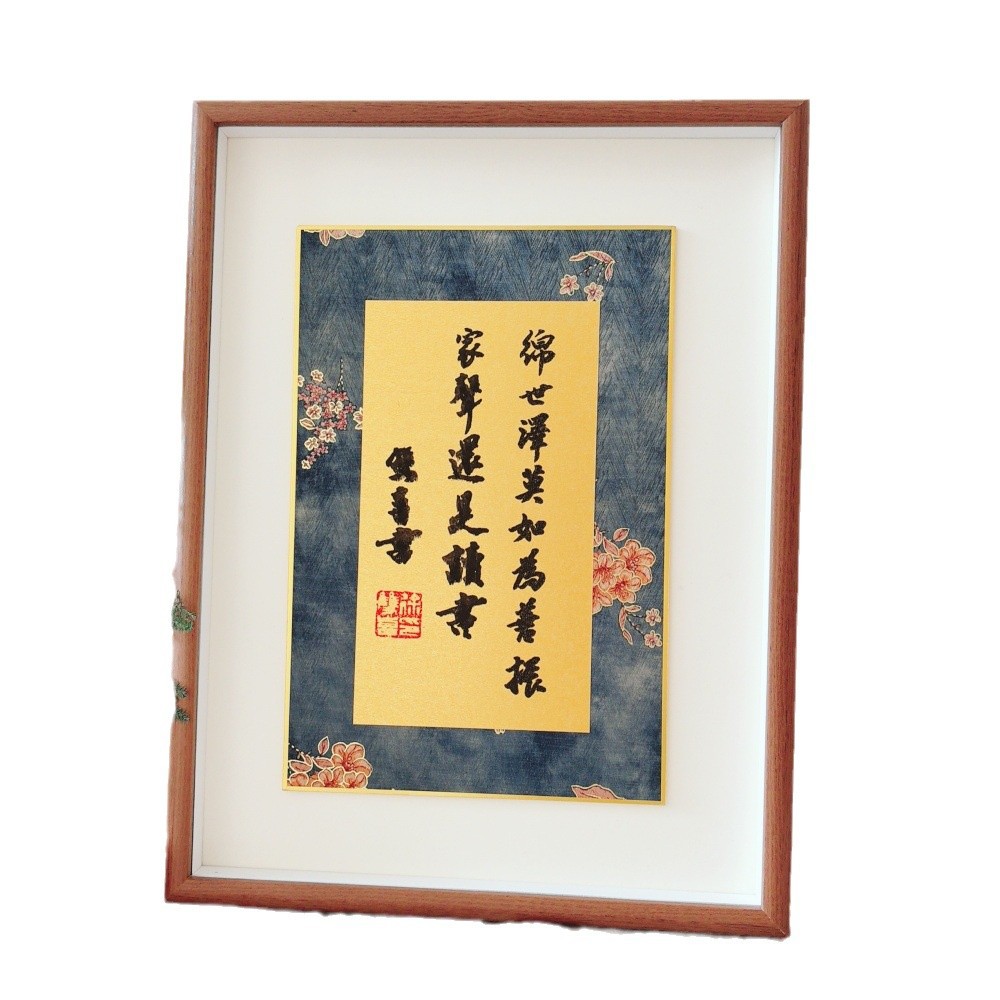 綿世澤莫如為善振
家聲還是讀書